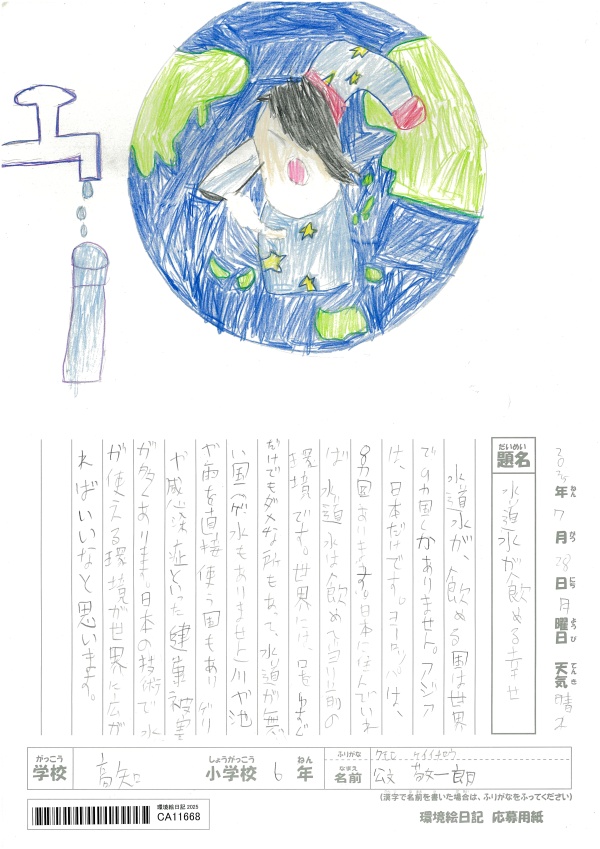 2025年ねん7月がつ28日にち月曜日ようび 天気てんき晴れ
だいめい
題名 水道水が飲める幸せ
水道水が、飲める国は世界
で9カ国しかありません。アジア
は、日本だけです。ヨーロッパは、
8カ国あります。日本に住んでいれ
ば、水道水は飲めて
前の
環境です。世界には、口をゆすぐ
だけでもダメな所もあって、水道が無
い国
水もありません 川や池
や雨を直接使う国もあり ゲリ
や感染症といった健康被害
が多くあります。日本の技術で水
が使える環境が世界に広が
ればいいなと思います。
がっこう しょうがっこう ねん
学校 高知 小学校 6 年
ふりがな クモン ケイイチロウ
なまえ
名前 公文 敬一郎
(漢字で名前を書いた場合は、ふりがなをふってください)
環境絵日記 2025
CA11668
環境絵日記 応募用紙